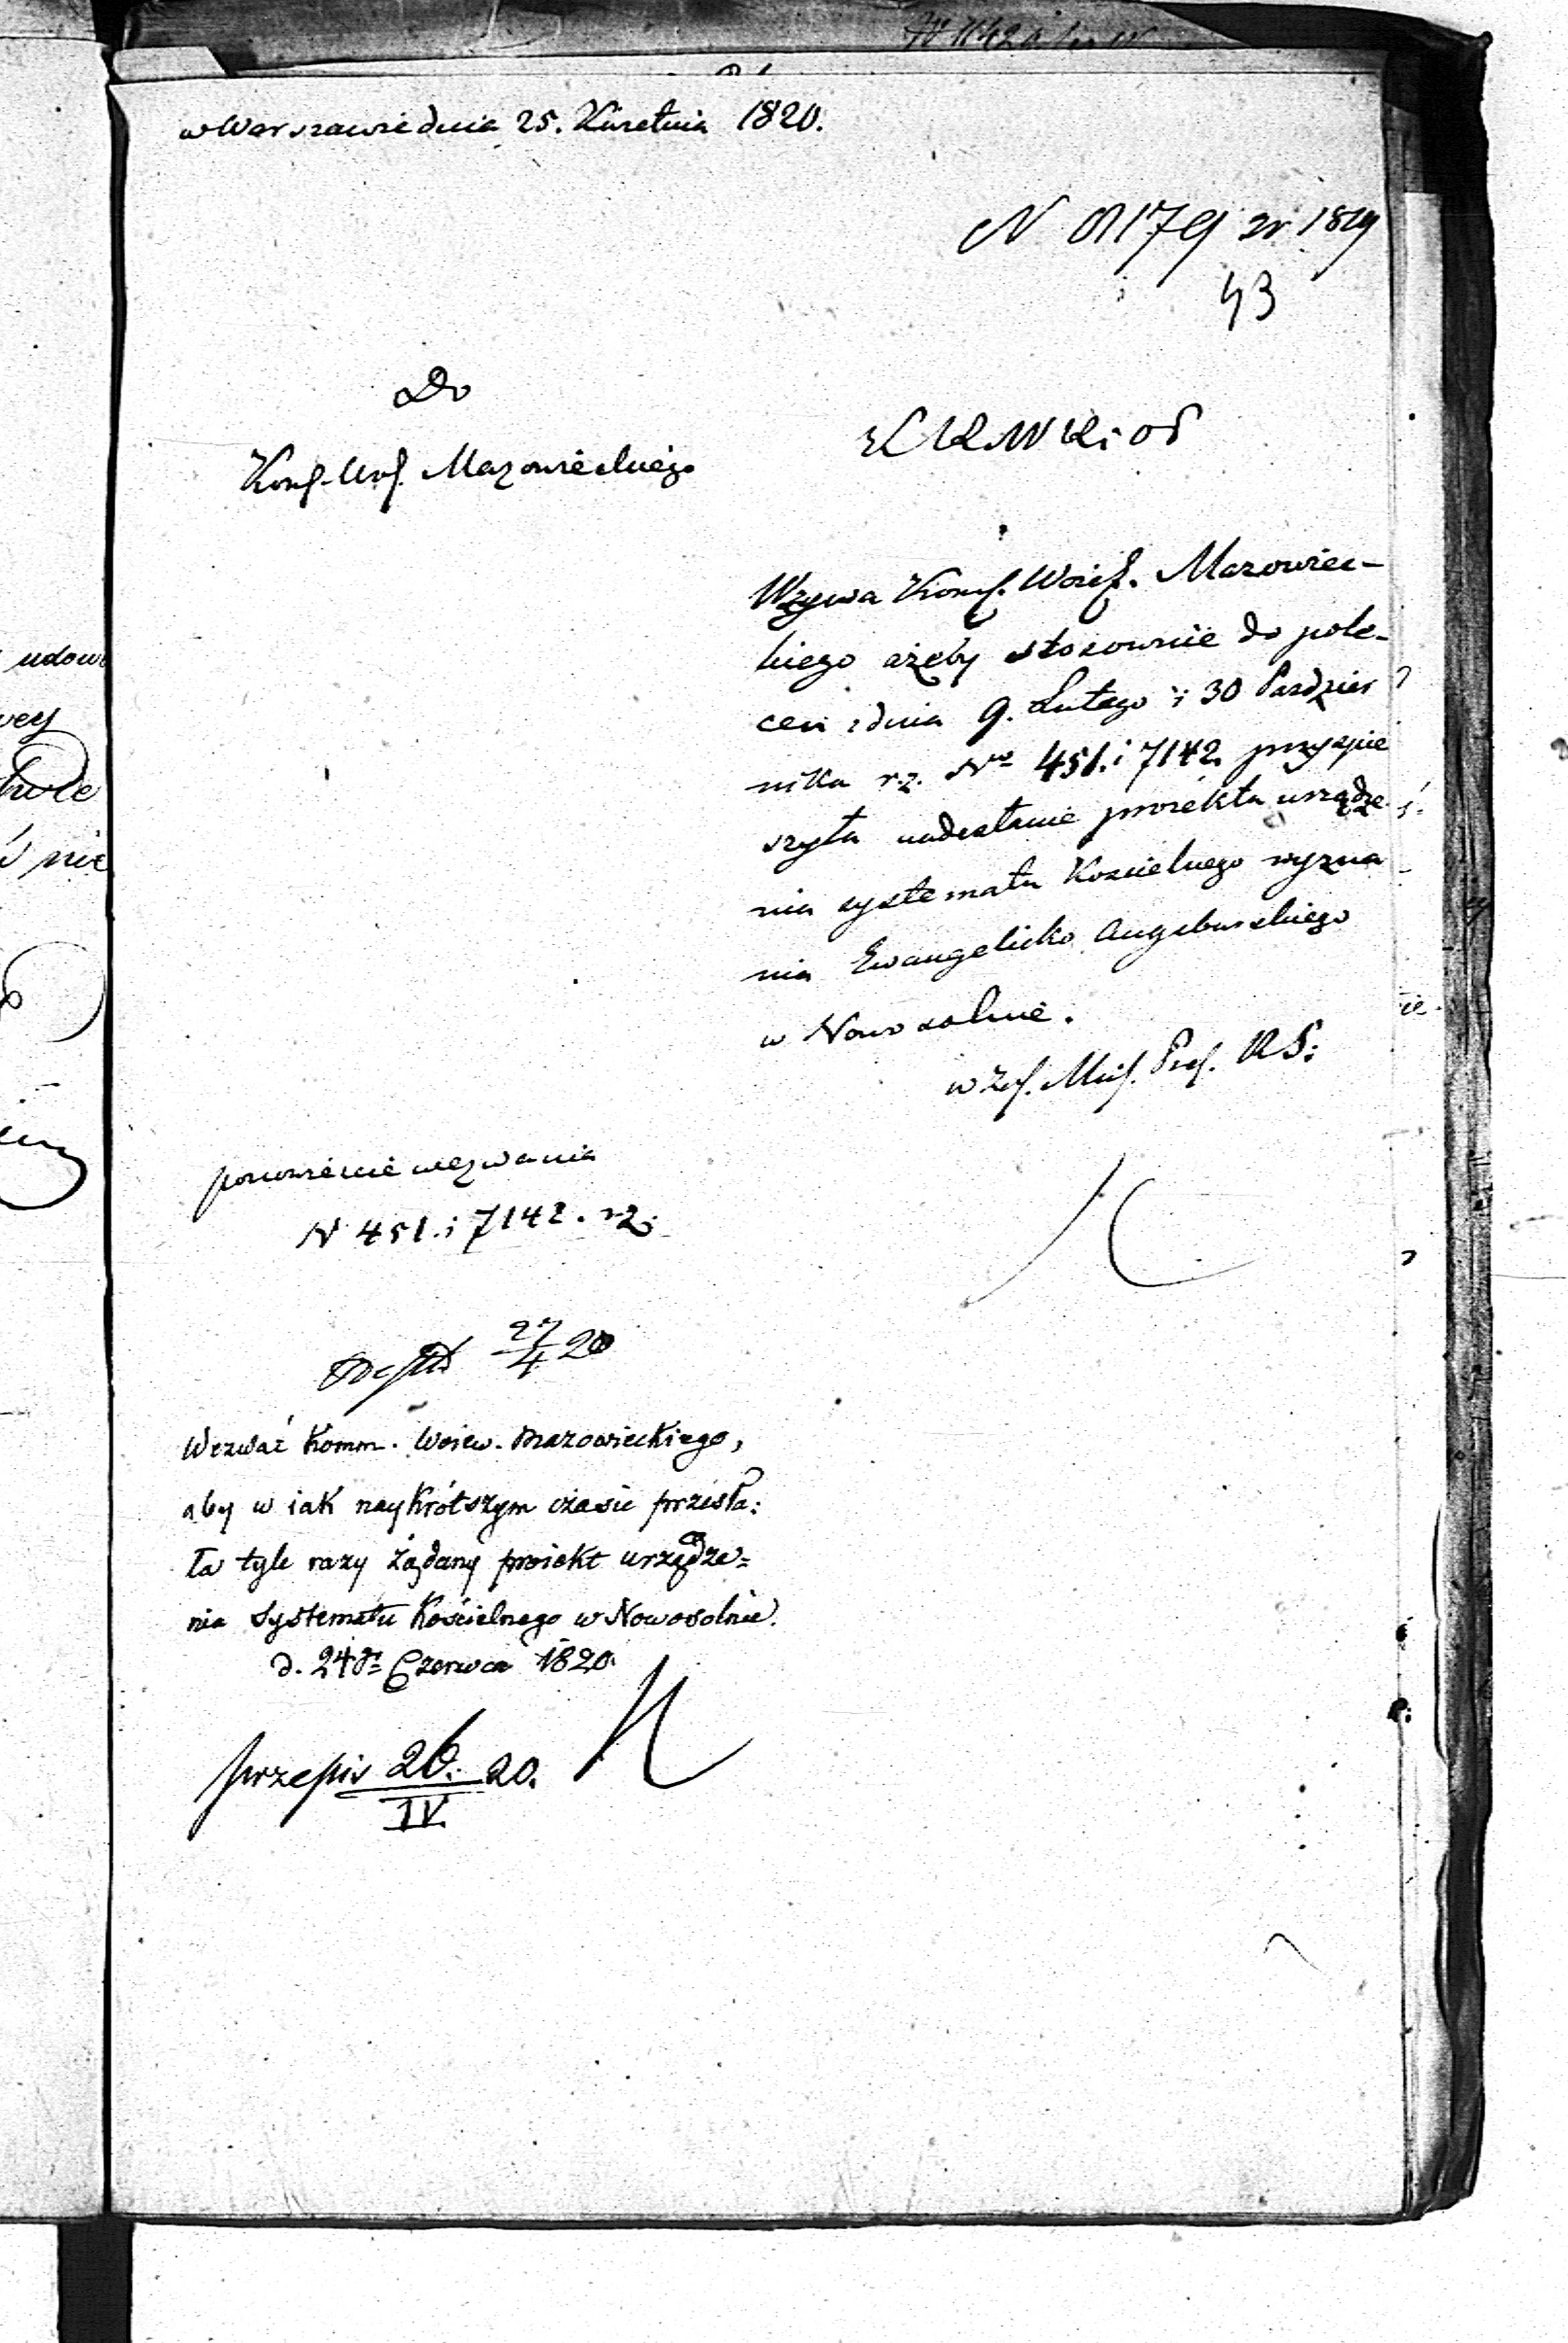 w Warszawie dnia 25. Kwietnia 1820.
N 8179 zr 1819
43
Do
Kom. Wo. Mazowieckiego
KRWR i OP
Wzywa Kom. Woie. Mazowiec-
kiego ażeby stosownie do pole-
ceń z dnia 9. Lutego i 30 Pazdzier
nika r. z. Nro 451. i 7142. przyspie
szyła nadesłanie proiektu urządze
nia systematu Koscielnego wyzna
nia Ewangelicko Augsburskiego
w Nowosolnie.
w Zas. Min. Prez.
ponowienie wezwania
N 451. i 7142. r. z.
27/4 20
Wezwać Komm. Woiew. Mazowieckiego,
aby w iak naykrótszym czasie przesła:
ła tyle razy żądany proiekt urządze=
nia Systematu Kościelnego w Nowosolnie.
d. 24 Czerwca 1820.
przepis 26. 20.
IV.